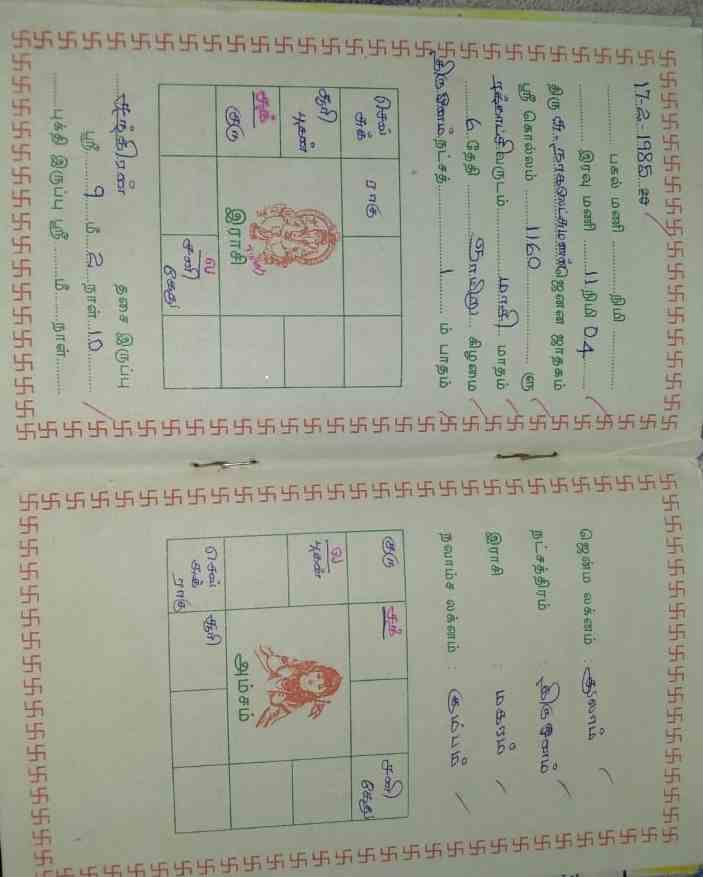 17-2-1985 ஆ
பகல் மணி ........ நிமி ........
இரவு மணி 11 நிமி 04
திரு சு. நாகலெட்சுமணன் ஜெனன ஜாதகம்
ஸ்ரீ கொல்லம் 1160 ளு
ரத்தாட்சி வருடம் மாசி மாதம்
6 தேதி ஞாயிறு கிழமை
திருஓணம் நட்சத் 1 ம் பாதம்
செவ் சுக்
ராகு
சூரி புதன்
சந் குரு
ல சனி கேது
இராசி
சந்திரன் தசை இருப்பு
ஸ்ரீ 9 மீ 2 நாள் 10
புக்தி இருப்பு ஸ்ரீ ...... மீ ...... நாள்
ஜென்ம லக்னம் : துலாம்
நட்சத்திரம் : திருஓணம்
இராசி : மகரம்
நவாம்ச லக்னம் : கும்பம்
குரு
சந்
சனி கேது
ல புதன்
அம்சம்
செவ் சுக் ராகு
சூரி